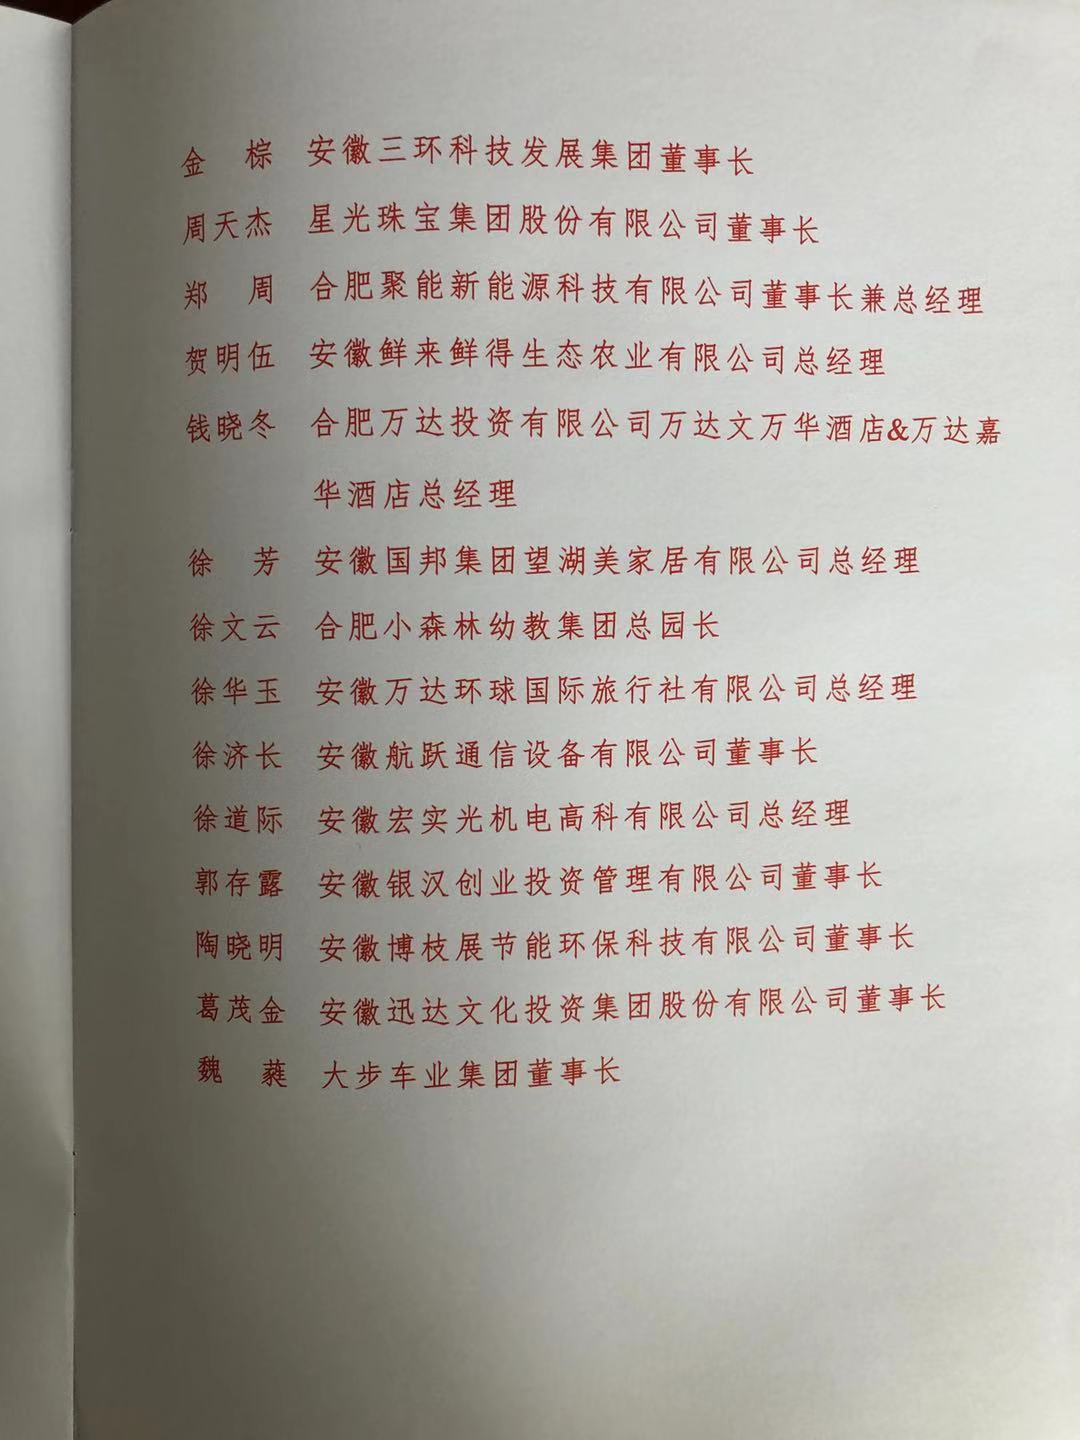 金 棕 安徽三环科技发展集团董事长
周天杰 星光珠宝集团股份有限公司董事长
郑 周 合肥聚能新能源科技有限公司董事长兼总经理
贺明伍 安徽鲜来鲜得生态农业有限公司总经理
钱晓冬 合肥万达投资有限公司万达文万华酒店&万达嘉
华酒店总经理
徐 芳 安徽国邦集团望湖美家居有限公司总经理
徐文云 合肥小森林幼教集团总园长
徐华玉 安徽万达环球国际旅行社有限公司总经理
徐济长 安徽航跃通信设备有限公司董事长
徐道际 安徽宏实光机电高科有限公司总经理
郭存露 安徽银汉创业投资管理有限公司董事长
陶晓明 安徽博枝展节能环保科技有限公司董事长
葛茂金 安徽迅达文化投资集团股份有限公司董事长
魏 蕤 大步车业集团董事长